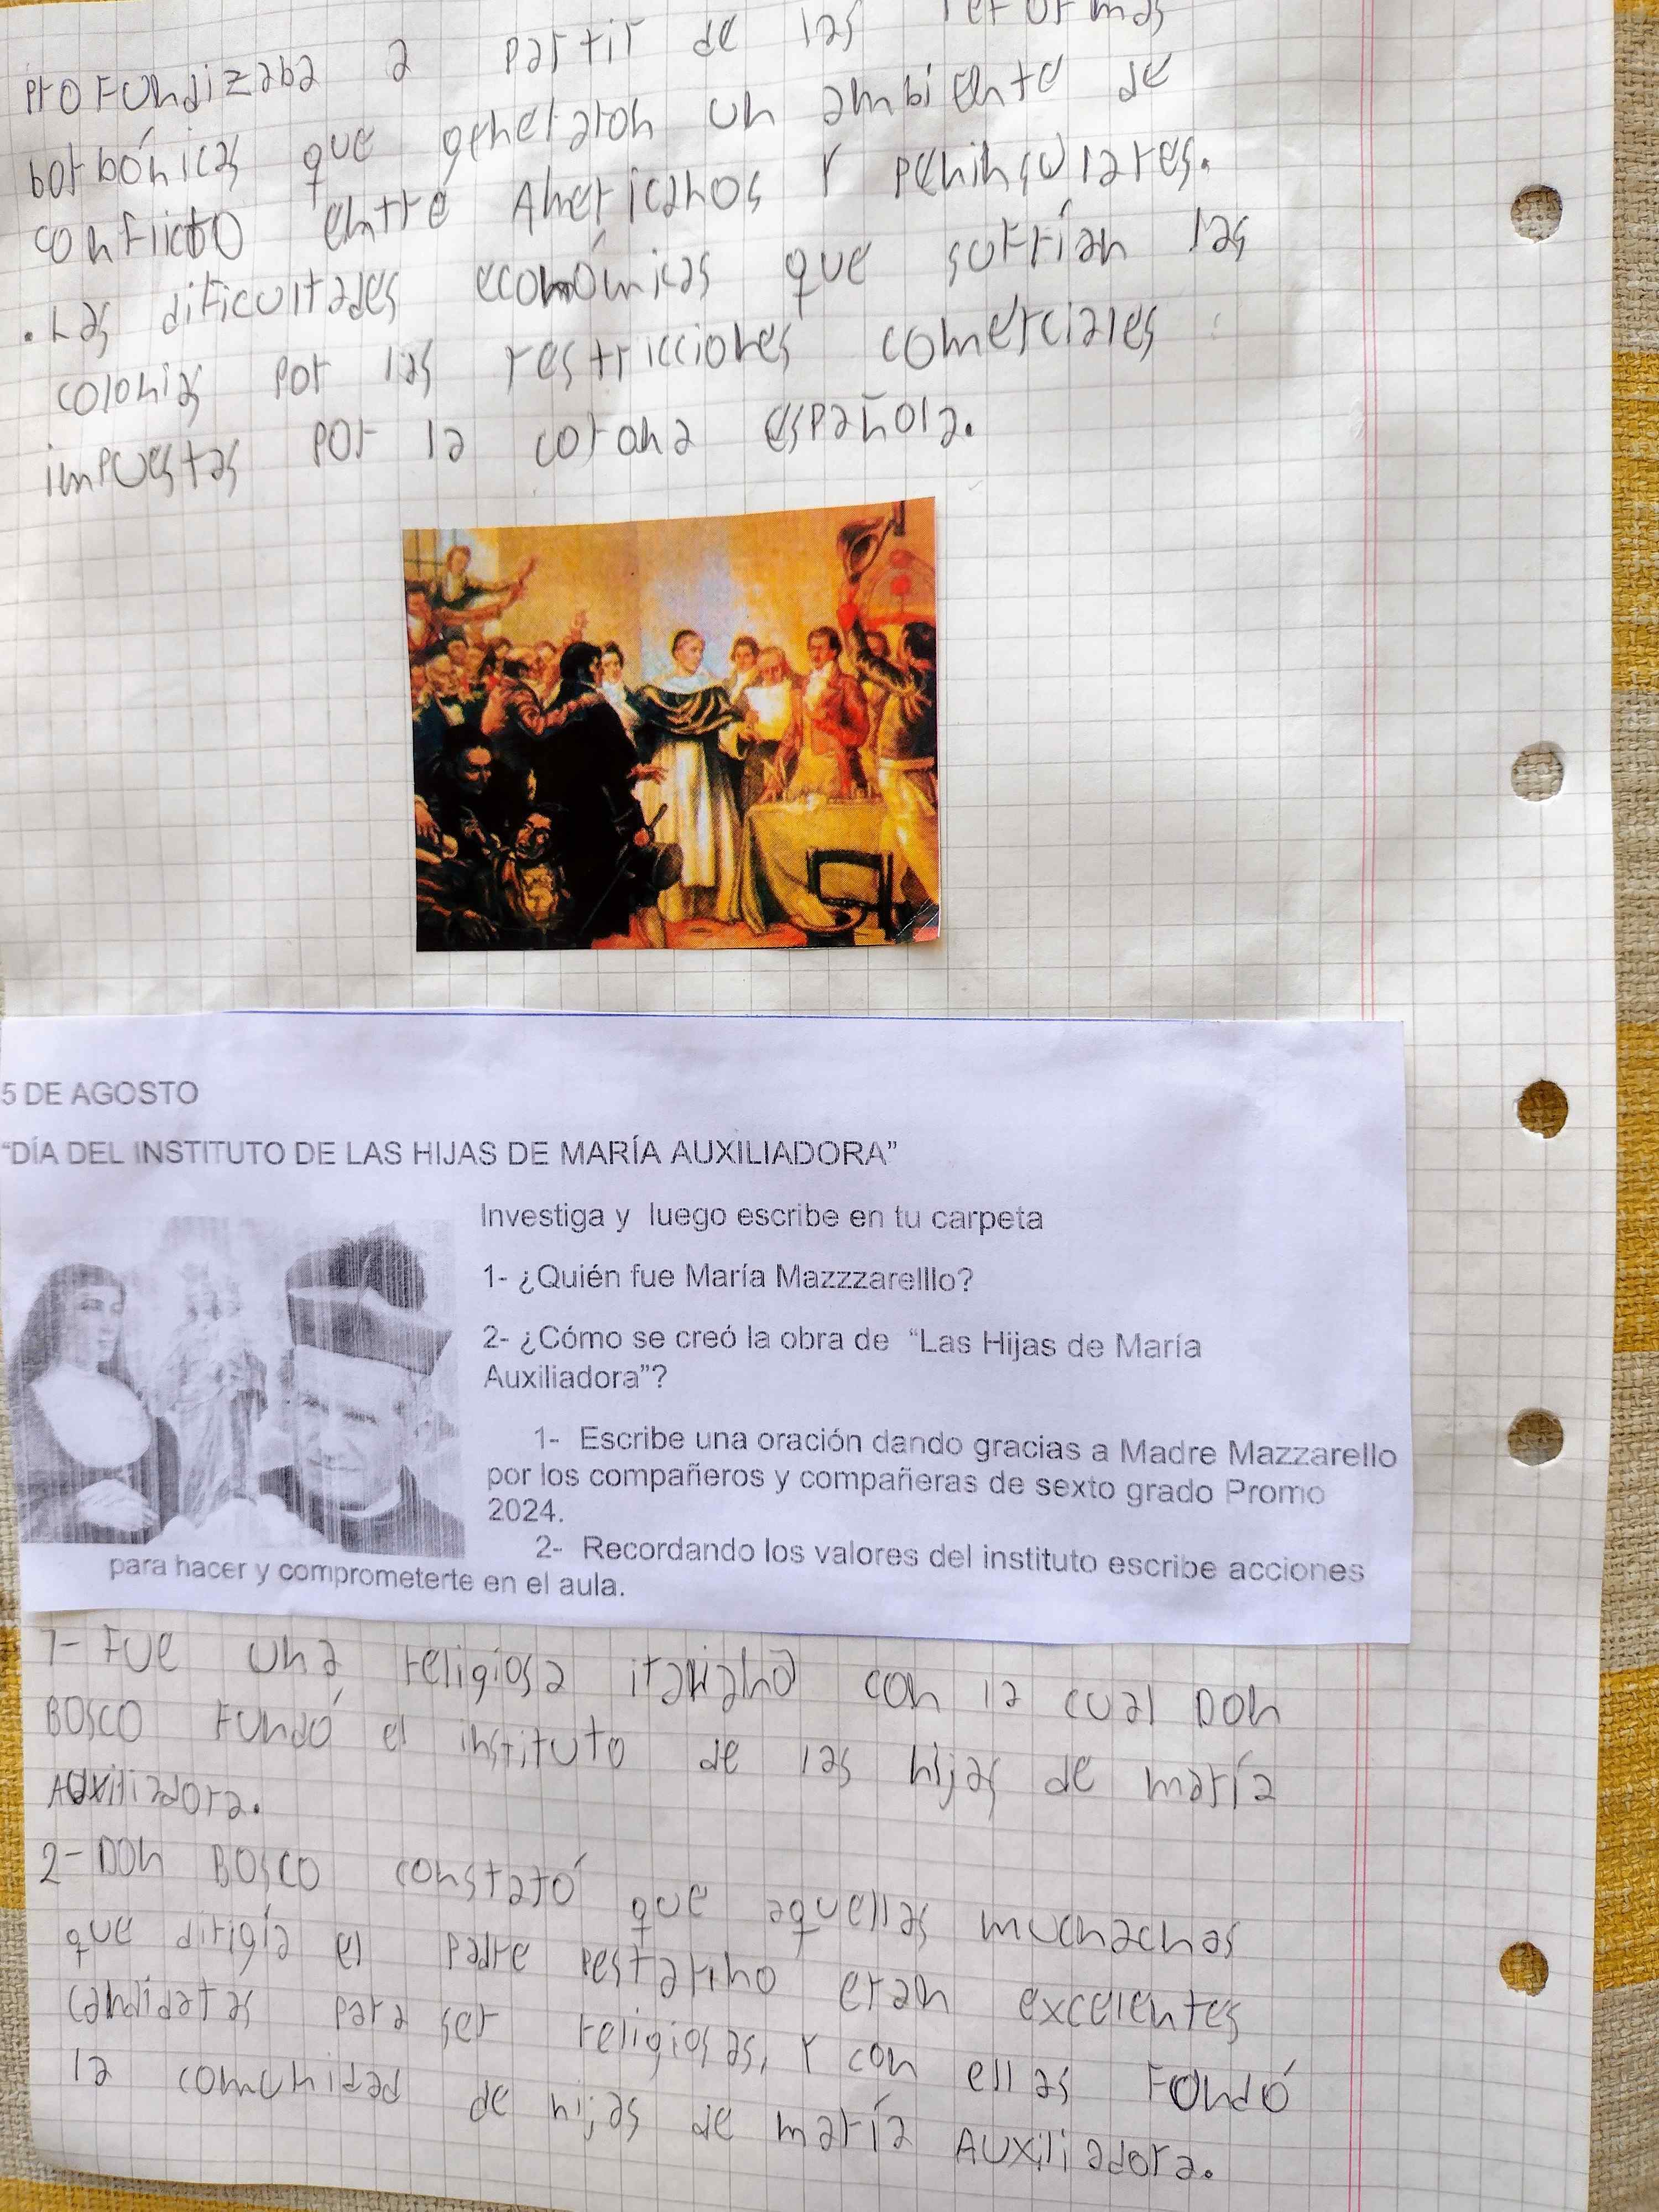 profundizaba a partir de las reformas
borbónicas que generaron un ambiente de
conflicto entre Americanos y peninsulares.
. Las dificultades económicas que sufrían las
colonias por las restricciones comerciales
impuestas por la corona española.
5 DE AGOSTO
“DÍA DEL INSTITUTO DE LAS HIJAS DE MARÍA AUXILIADORA”
Investiga y luego escribe en tu carpeta
1- ¿Quién fue María Mazzzarelllo?
2- ¿Cómo se creó la obra de “Las Hijas de María
Auxiliadora”?
1- Escribe una oración dando gracias a Madre Mazzarello
por los compañeros y compañeras de sexto grado Promo
2024.
2- Recordando los valores del instituto escribe acciones
para hacer y comprometerte en el aula.
1- Fue una religiosa italiana con la cual Don
Bosco fundó el instituto de las hijas de maría
Auxiliadora.
2- Don Bosco constató que aquellas muchachas
que dirigía el padre pestarino eran excelentes
candidatas para ser religiosas, y con ellas fundó
la comunidad de hijas de maría Auxiliadora.